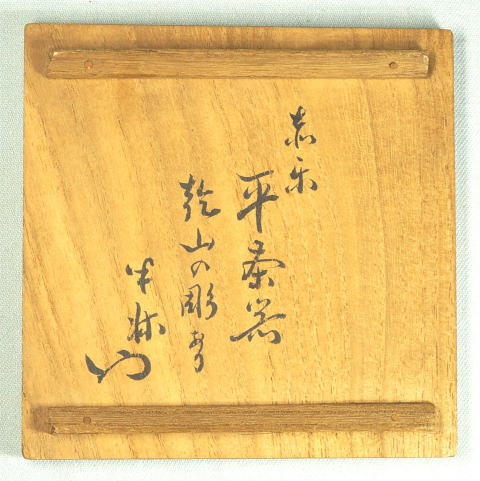 赤楽
平茶器
乾山の彫あり
半牀